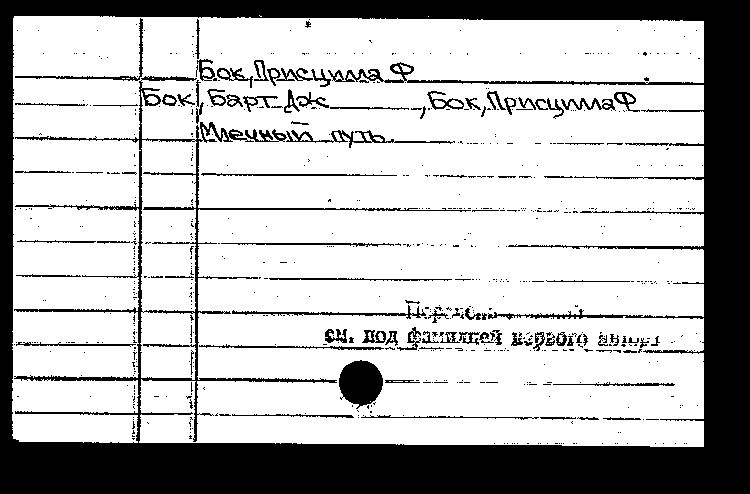 Бок, Присцилла Ф
Бок, Барт Дж , Бок, Присцилла Ф
Млечный путь.
см. под фамилией первого автора